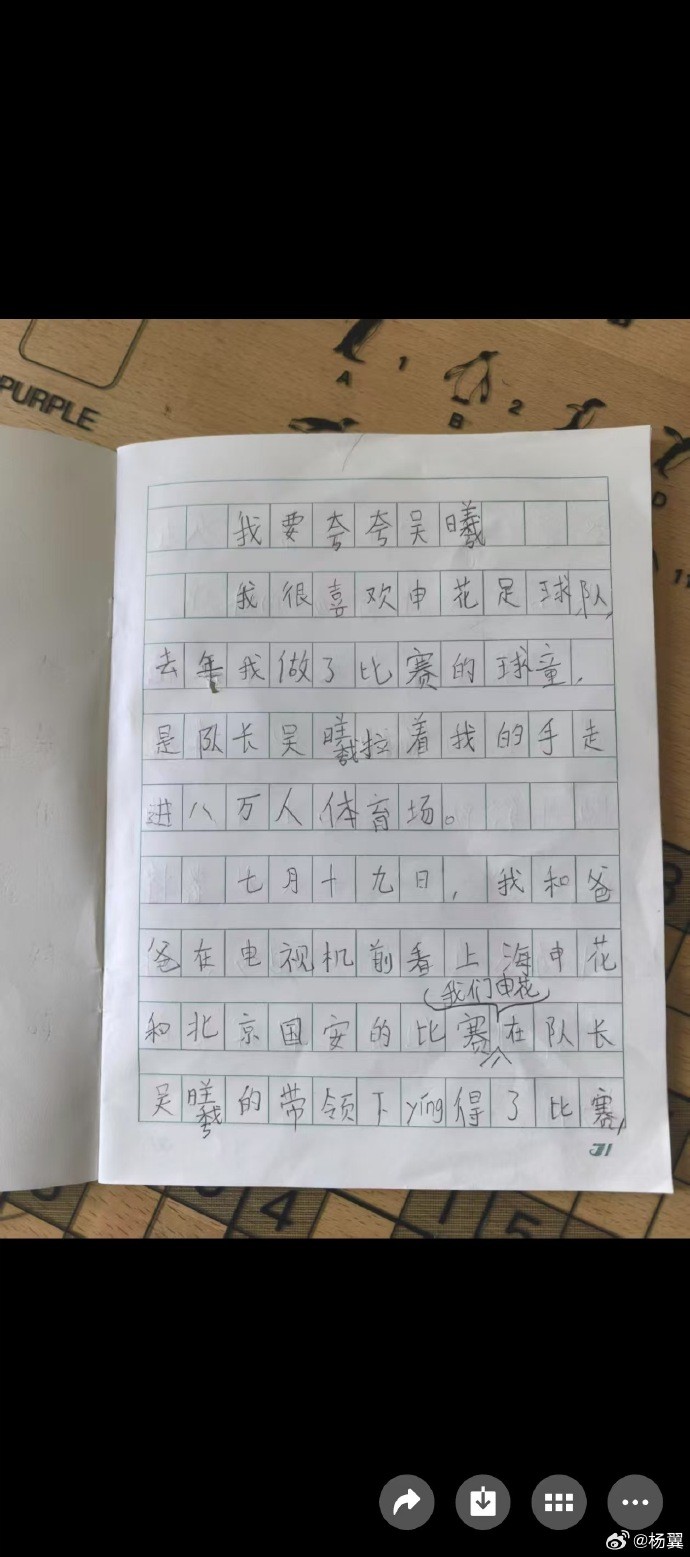 PURPLE
A
1
B
2
D
11
我要夸夸吴曦
我很喜欢申花足球队,
去年我做了比赛的球童,
是队长吴曦拉着我的手走
进八万人体育场。
七月十九日,我和爸
爸在电视机前看上海申花
我们申花
和北京国安的比赛在队长
吴曦的带领下ying得了比赛,
31
3
4
1
5
@杨翼